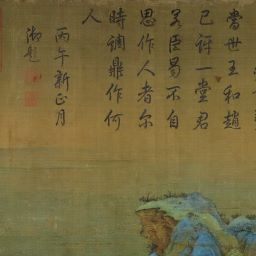 當世王和趙
已訝一堂君
若臣曷不自
思作人者尔
時調鼎作何
人
丙午新正月
御題